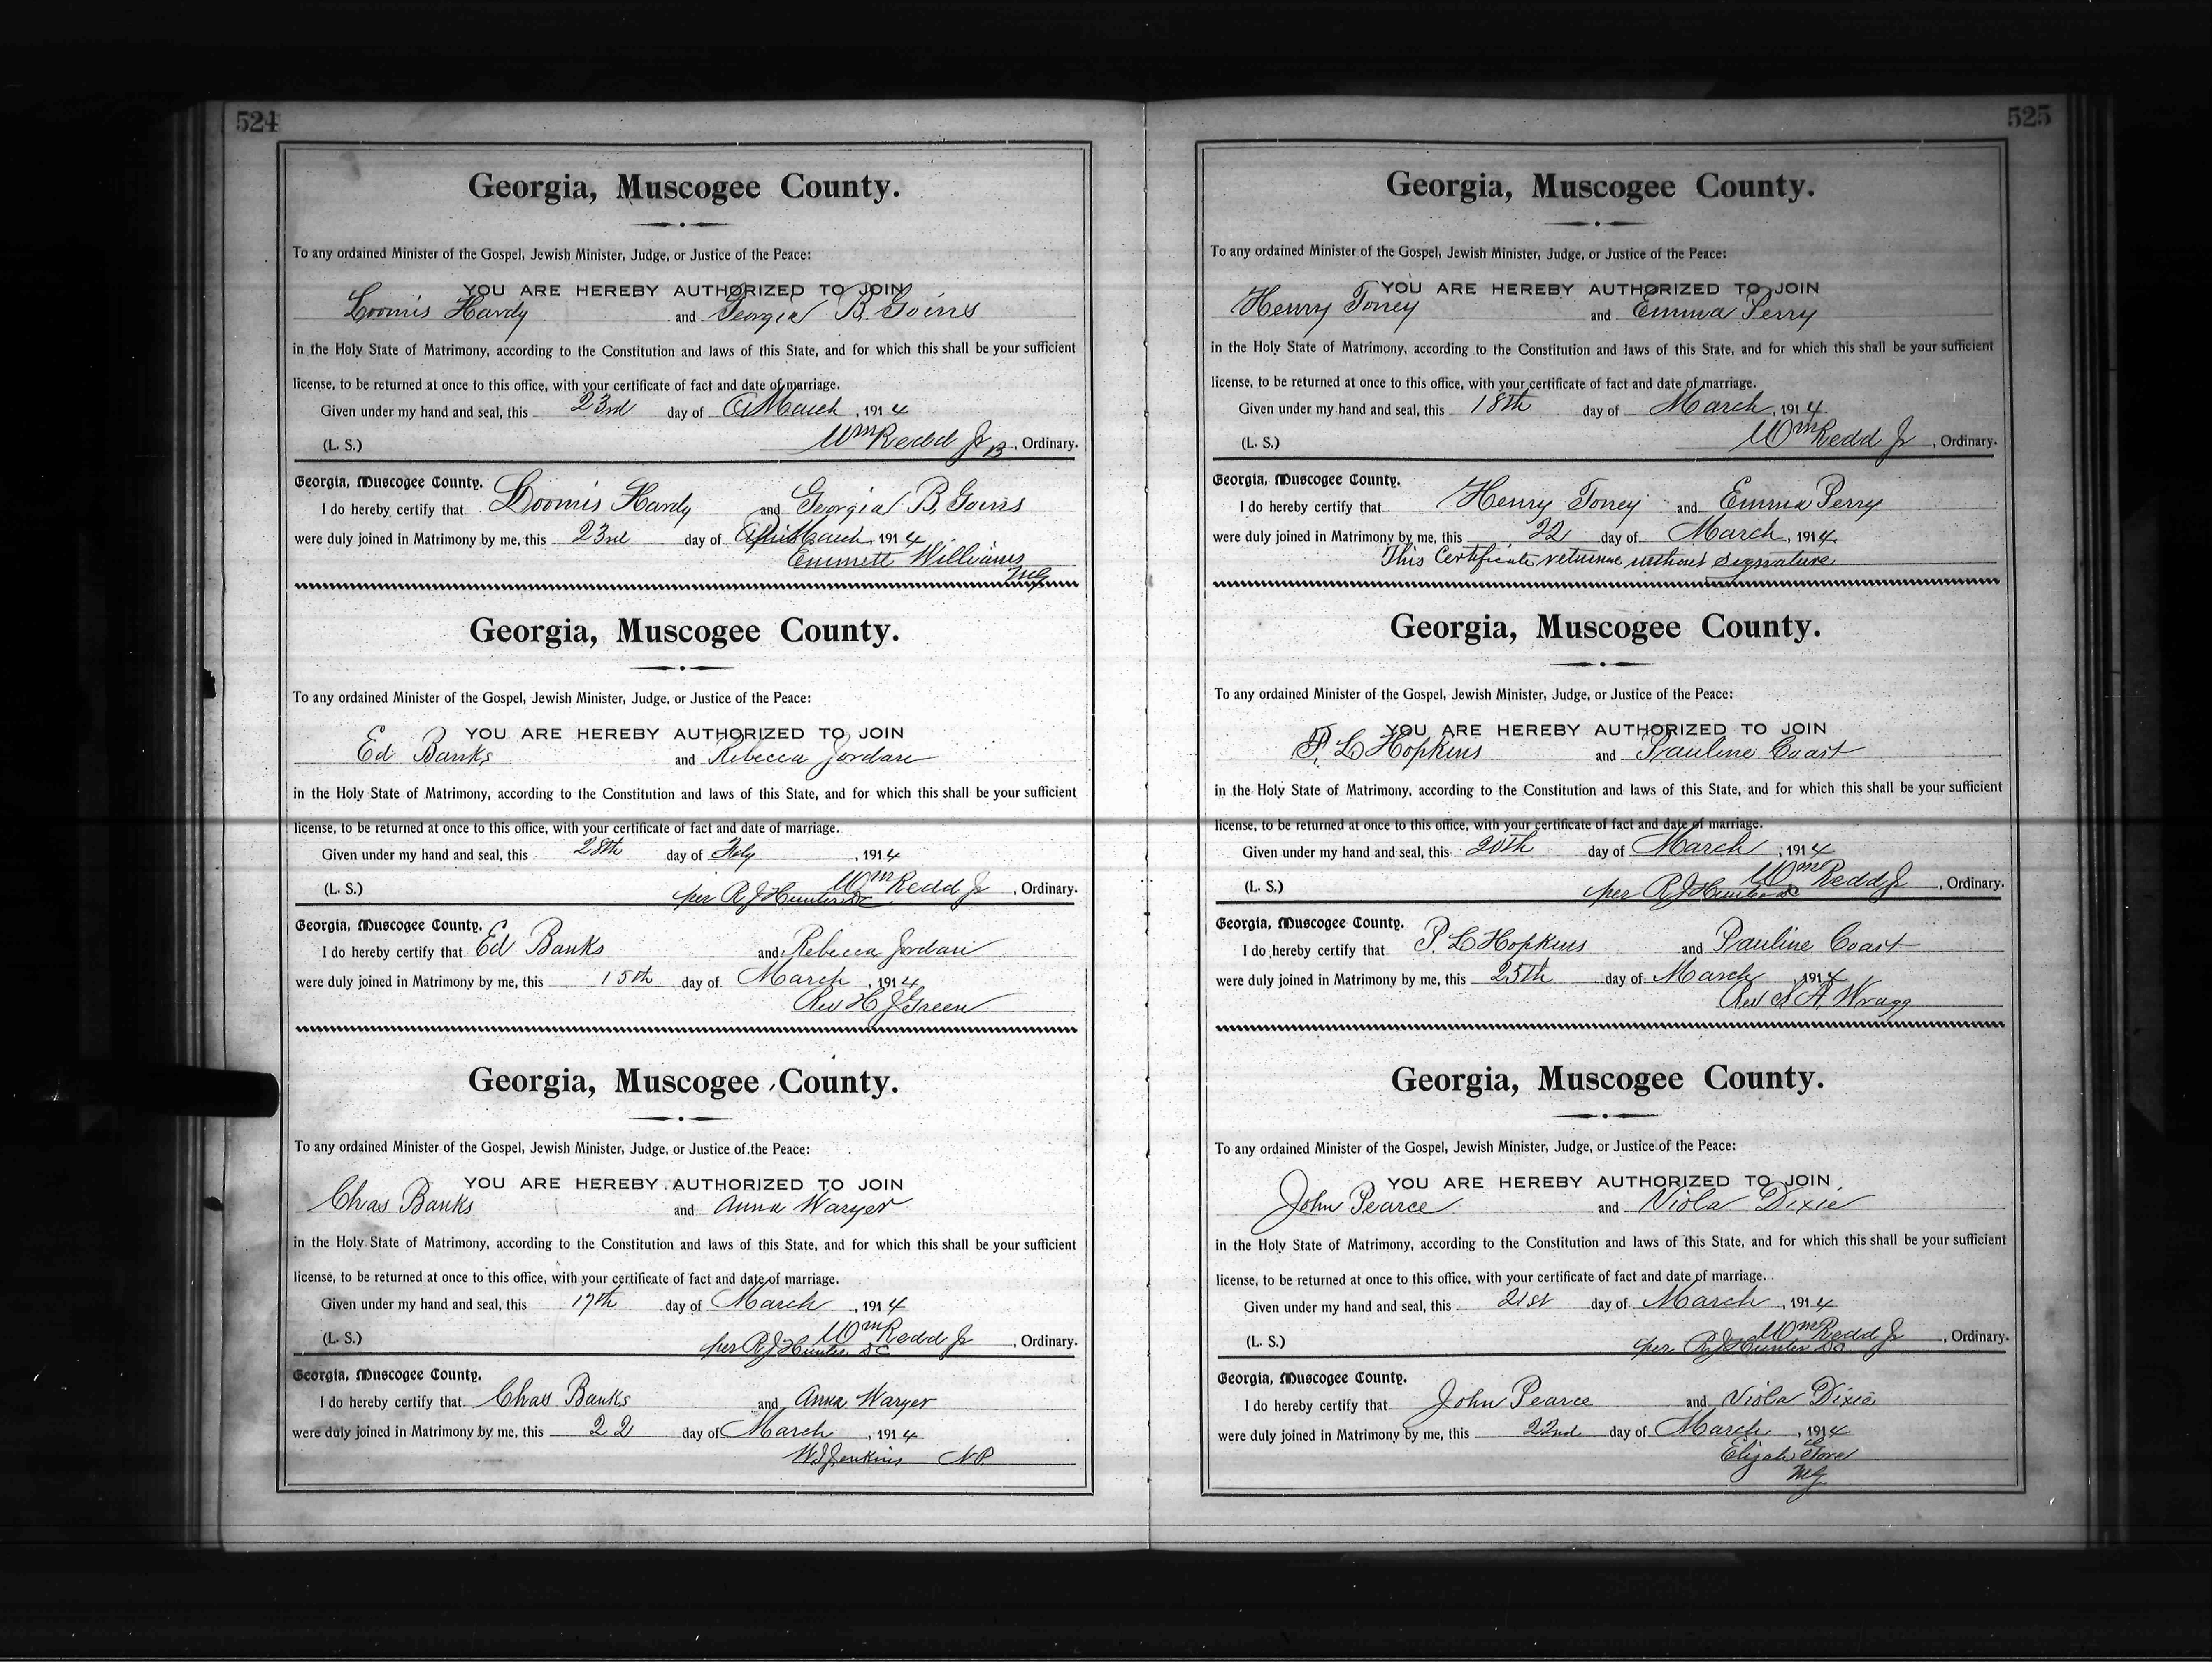 524
Georgia, Muscogee County.
To any ordained Minister of the Gospel, Jewish Minister, Judge, or Justice of the Peace:
YOU ARE HEREBY AUTHORIZED TO JOIN
Loomis Hardy and Georgia B. Goins
in the Holy State of Matrimony, according to the Constitution and laws of this State, and for which this shall be your sufficient
license, to be returned at once to this office, with your certificate of fact and date of marriage.
Given under my hand and seal, this 23rd day of March, 1914
(L. S.) Wm Redd Jr B, Ordinary.
Georgia, Muscogee County.
I do hereby certify that Loomis Hardy and Georgia B. Goins
were duly joined in Matrimony by me, this 23rd day of March, 1914
Emmett Williams
MG
Georgia, Muscogee County.
To any ordained Minister of the Gospel, Jewish Minister, Judge, or Justice of the Peace:
YOU ARE HEREBY AUTHORIZED TO JOIN
Ed Banks and Rebecca Jordan
in the Holy State of Matrimony, according to the Constitution and laws of this State, and for which this shall be your sufficient
license, to be returned at once to this office, with your certificate of fact and date of marriage.
Given under my hand and seal, this 28th day of Feby, 1914
Wm Redd Jr
(L. S.) per R J Hunter DC, Ordinary.
Georgia, Muscogee County.
I do hereby certify that Ed Banks and Rebecca Jordan
were duly joined in Matrimony by me, this 15th day of March, 1914
Rev H J Green
Georgia, Muscogee County.
To any ordained Minister of the Gospel, Jewish Minister, Judge, or Justice of the Peace:
YOU ARE HEREBY AUTHORIZED TO JOIN
Chas Banks and Anna Waryer
in the Holy State of Matrimony, according to the Constitution and laws of this State, and for which this shall be your sufficient
license, to be returned at once to this office, with your certificate of fact and date of marriage.
Given under my hand and seal, this 17th day of March, 1914
Wm Redd Jr
(L. S.) per R J Hunter DC, Ordinary.
Georgia, Muscogee County.
I do hereby certify that Chas Banks and Anna Waryer
were duly joined in Matrimony by me, this 22 day of March, 1914
W J Jenkins NP
525
Georgia, Muscogee County.
To any ordained Minister of the Gospel, Jewish Minister, Judge, or Justice of the Peace:
YOU ARE HEREBY AUTHORIZED TO JOIN
Henry Toney and Emma Perry
in the Holy State of Matrimony, according to the Constitution and laws of this State, and for which this shall be your sufficient
license, to be returned at once to this office, with your certificate of fact and date of marriage.
Given under my hand and seal, this 18th day of March, 1914
(L. S.) Wm Redd Jr, Ordinary.
Georgia, Muscogee County.
I do hereby certify that Henry Toney and Emma Perry
were duly joined in Matrimony by me, this 22 day of March, 1914
This Certificate returned without signature
Georgia, Muscogee County.
To any ordained Minister of the Gospel, Jewish Minister, Judge, or Justice of the Peace:
YOU ARE HEREBY AUTHORIZED TO JOIN
P. L Hopkins and Pauline Coast
in the Holy State of Matrimony, according to the Constitution and laws of this State, and for which this shall be your sufficient
license, to be returned at once to this office, with your certificate of fact and date of marriage.
Given under my hand and seal, this 20th day of March, 1914
Wm Redd Jr
(L. S.) per R J Hunter DC, Ordinary.
Georgia, Muscogee County.
I do hereby certify that P. L Hopkins and Pauline Coast
were duly joined in Matrimony by me, this 25th day of March, 1914
Rev A. Wragg
Georgia, Muscogee County.
To any ordained Minister of the Gospel, Jewish Minister, Judge, or Justice of the Peace:
YOU ARE HEREBY AUTHORIZED TO JOIN
John Pearce and Viola Dixie
in the Holy State of Matrimony, according to the Constitution and laws of this State, and for which this shall be your sufficient
license, to be returned at once to this office, with your certificate of fact and date of marriage.
Given under my hand and seal, this 21st day of March, 1914
Wm Redd Jr
(L. S.) per R J Hunter DC, Ordinary.
Georgia, Muscogee County.
I do hereby certify that John Pearce and Viola Dixie
were duly joined in Matrimony by me, this 22nd day of March, 1914
Elijah
MG